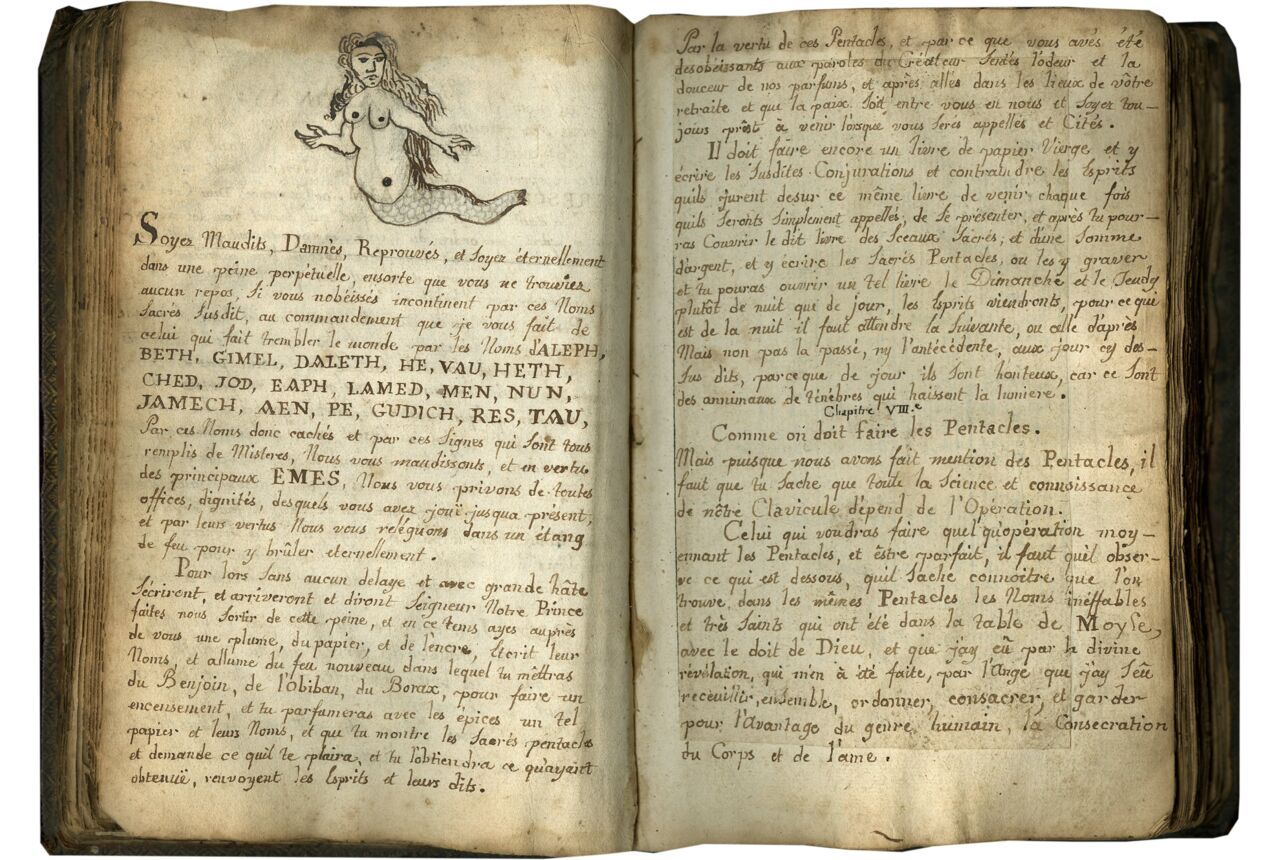 Soyez Maudits, Damnés, Reprouvés, et soyez éternellement
dans une peine perpétuelle, ensorte que vous ne trouviez
aucun repos, Si vous nobéissés incontinent par ces Noms
Sacrés Susdit, au commandement que je vous fait de
celui qui fait trembler le monde par les Noms d'ALEPH,
BETH, GIMEL, DALETH, HE, VAU, HETH,
CHED, JOD, EAPH, LAMED, MEN, NUN,
JAMECH, AEN, PE, GUDICH, RES, TAU,
Par ces Noms donc cachés et par ces Signes qui sont tous
remplis de Misteres, Nous vous maudissons, et en vertu
des principaux EMES, Nous vous privons de toutes
offices, dignités, desquels vous avez joüé jusqua présent,
et par leurs vertus Nous vous reléguons dans un étang
de feu pour y brûler eternellement.
Pour lors sans aucun delaye et avec grande hâte
Sécriront, et arriveront et diront Seigneur Notre Prince
faites nous Sortir de cette peine, et en ce tems ayes auprès
de vous une plume, du papier, et de l'encre, Ecrit leur
Noms, et allume du feu nouveau dans lequel tu mettras
du Benjoin, de l'obiban, du Borax, pour faire un
encensement, et tu parfumeras avec les épices un tel
papier et leurs Noms, et qui tu montre les Sacrés pentacles
et demande ce quil te plaira, et tu l'obtiendra ce qu'ayant
obtenuë, renvoyent les Esprits et leurs dits.
Par la vertu de ces Pentacles, et par ce que vous avés été
desobéissants aux paroles du Créateur Sentés l'odeur et la
douceur de nos parfums, et après allés dans les lieux de vôtre
retraite et que la paix Soit entre vous en nous et Soyez tou-
jours prêst à venir lorsque vous Serés appellés et Cités.
Il doit faire encore un livre de papier Vierge et y
écrire les Susdites Conjurations et contraindre les Esprits
quils jurent desur ce même livre de venir chaque fois
quils Seronts Simplement appelles, de Se présenter, et après tu pour-
ras Couvrir le dit livre des Sceaux Sacrés, et d'une Somme
d'argent, et y écrire les Sacrés Pentacles, ou les y graver
et tu pouras ouvrir un tel livre le Dimanche et le Jeudy
plutôt de nuit que de jour, les Esprits viendronts, pour ce qui
est de la nuit il faut attendre la Suivante, ou celle d'après
Mais non pas la passé, ny l'antécédente, aux jour cy des-
Sus dits, parceque de jour ils Sont honteux, car ce Sont
des annimaux de ténèbres qui haissent la lumiere.
Chapitre VIII.e
Comme on doit faire les Pentacles.
Mais puisque nous avons fait mention des Pentacles, il
faut que tu Sache que toute la Science et connoissance
de nôtre Clavicule dépend de l'Opération.
Celui qui voudras faire quel'quopération moy-
ennant les Pentacles, et êstre parfait, il faut quil obser-
ve ce qui est dessous, quil Sache connoitre que l'on
trouve, dans les mêmes Pentacles les Noms inéffables
et très Saints qui ont été dans la table de Moyse,
avec le doit de Dieu, et que j'ay eû par la divine
révélation, qui m'en à été faite, par l'Ange que j'ay Seû
receuillir, ensemble, ordonner, consacrer, et garder
pour l'avantage du genre humain, la Consecration
du Corps et de l'ame.